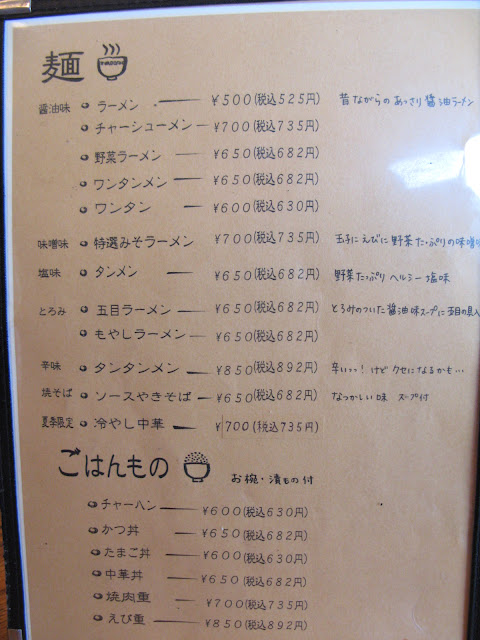 麺
醤油味 ラーメン ¥500(税込525円) 昔ながらのあっさり醤油ラーメン
チャーシューメン ¥700(税込735円)
野菜ラーメン ¥650(税込682円)
ワンタンメン ¥650(税込682円)
ワンタン ¥600(税込630円)
味噌味 特選みそラーメン ¥700(税込735円) 玉子にえびに野菜たっぷりの味噌味
塩味 タンメン ¥650(税込682円) 野菜たっぷりヘルシー塩味
とろみ 五目ラーメン ¥650(税込682円) とろみのついた醤油味スープに五目の具入
もやしラーメン ¥650(税込682円)
辛味 タンタンメン ¥850(税込892円) 辛いっっ!けどクセになるかも…
焼そば ソースやきそば ¥650(税込682円) なつかしい味 スープ付
夏季限定 冷やし中華 ¥700(税込735円)
ごはんもの お椀・漬もの付
チャーハン ¥600(税込630円)
かつ丼 ¥650(税込682円)
たまご丼 ¥600(税込630円)
中華丼 ¥650(税込682円)
焼肉重 ¥700(税込735円)
えび重 ¥850(税込892円)